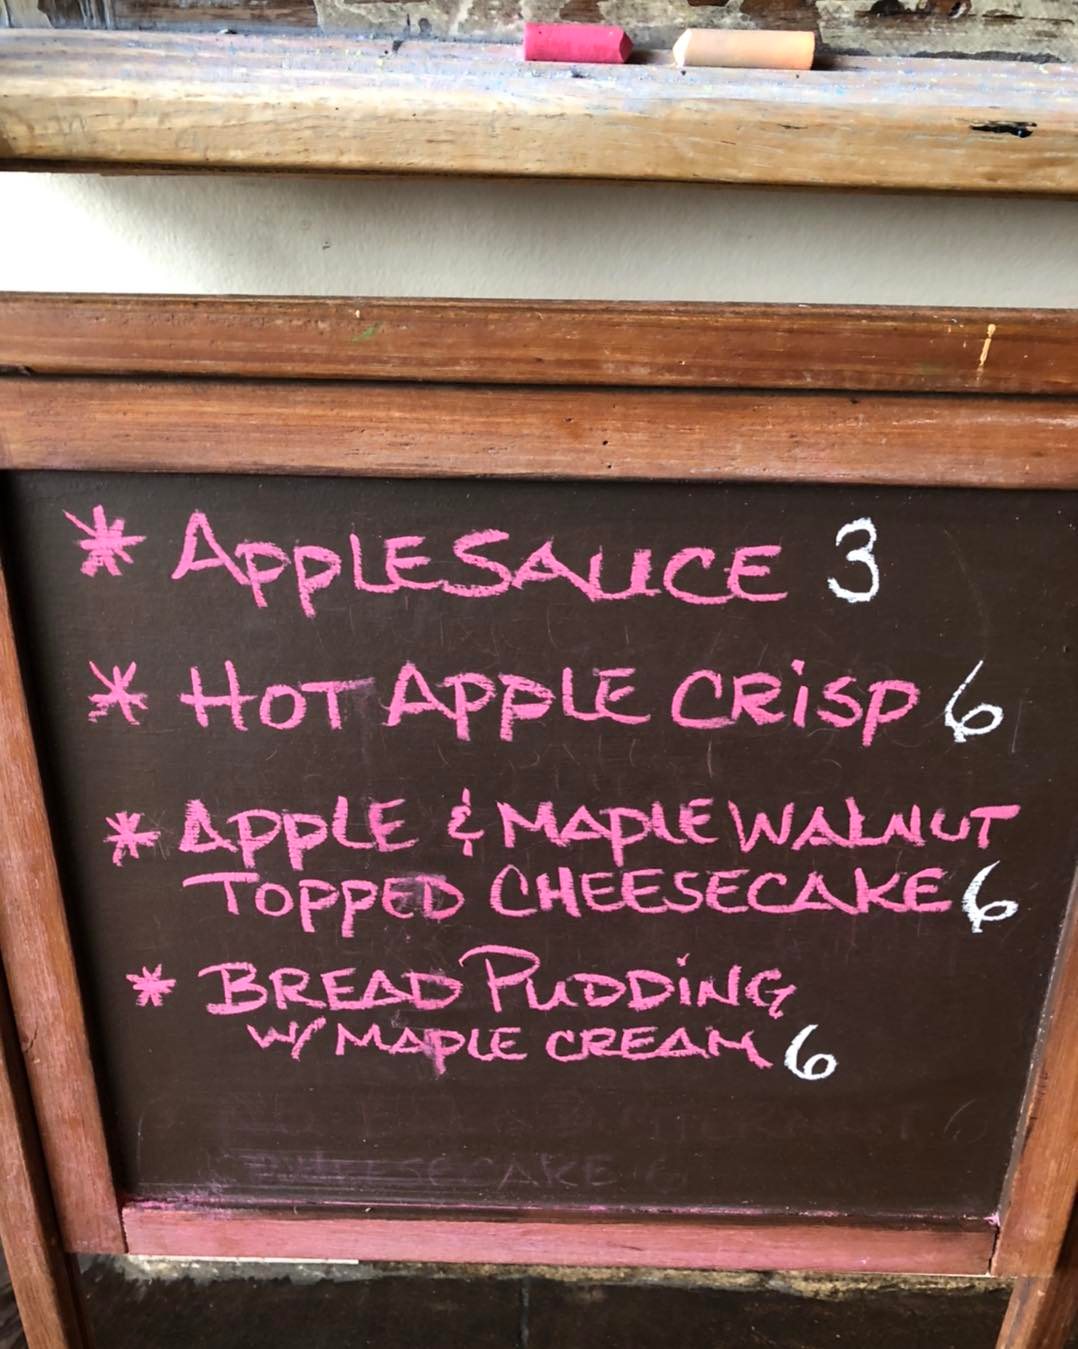 * APPLESAUCE 3
* HOT APPLE CRISP 6
* APPLE & MAPLE WALNUT
TOPPED CHEESECAKE 6
* BREAD PUDDING
W/ MAPLE CREAM 6
CHEESECAKE 6